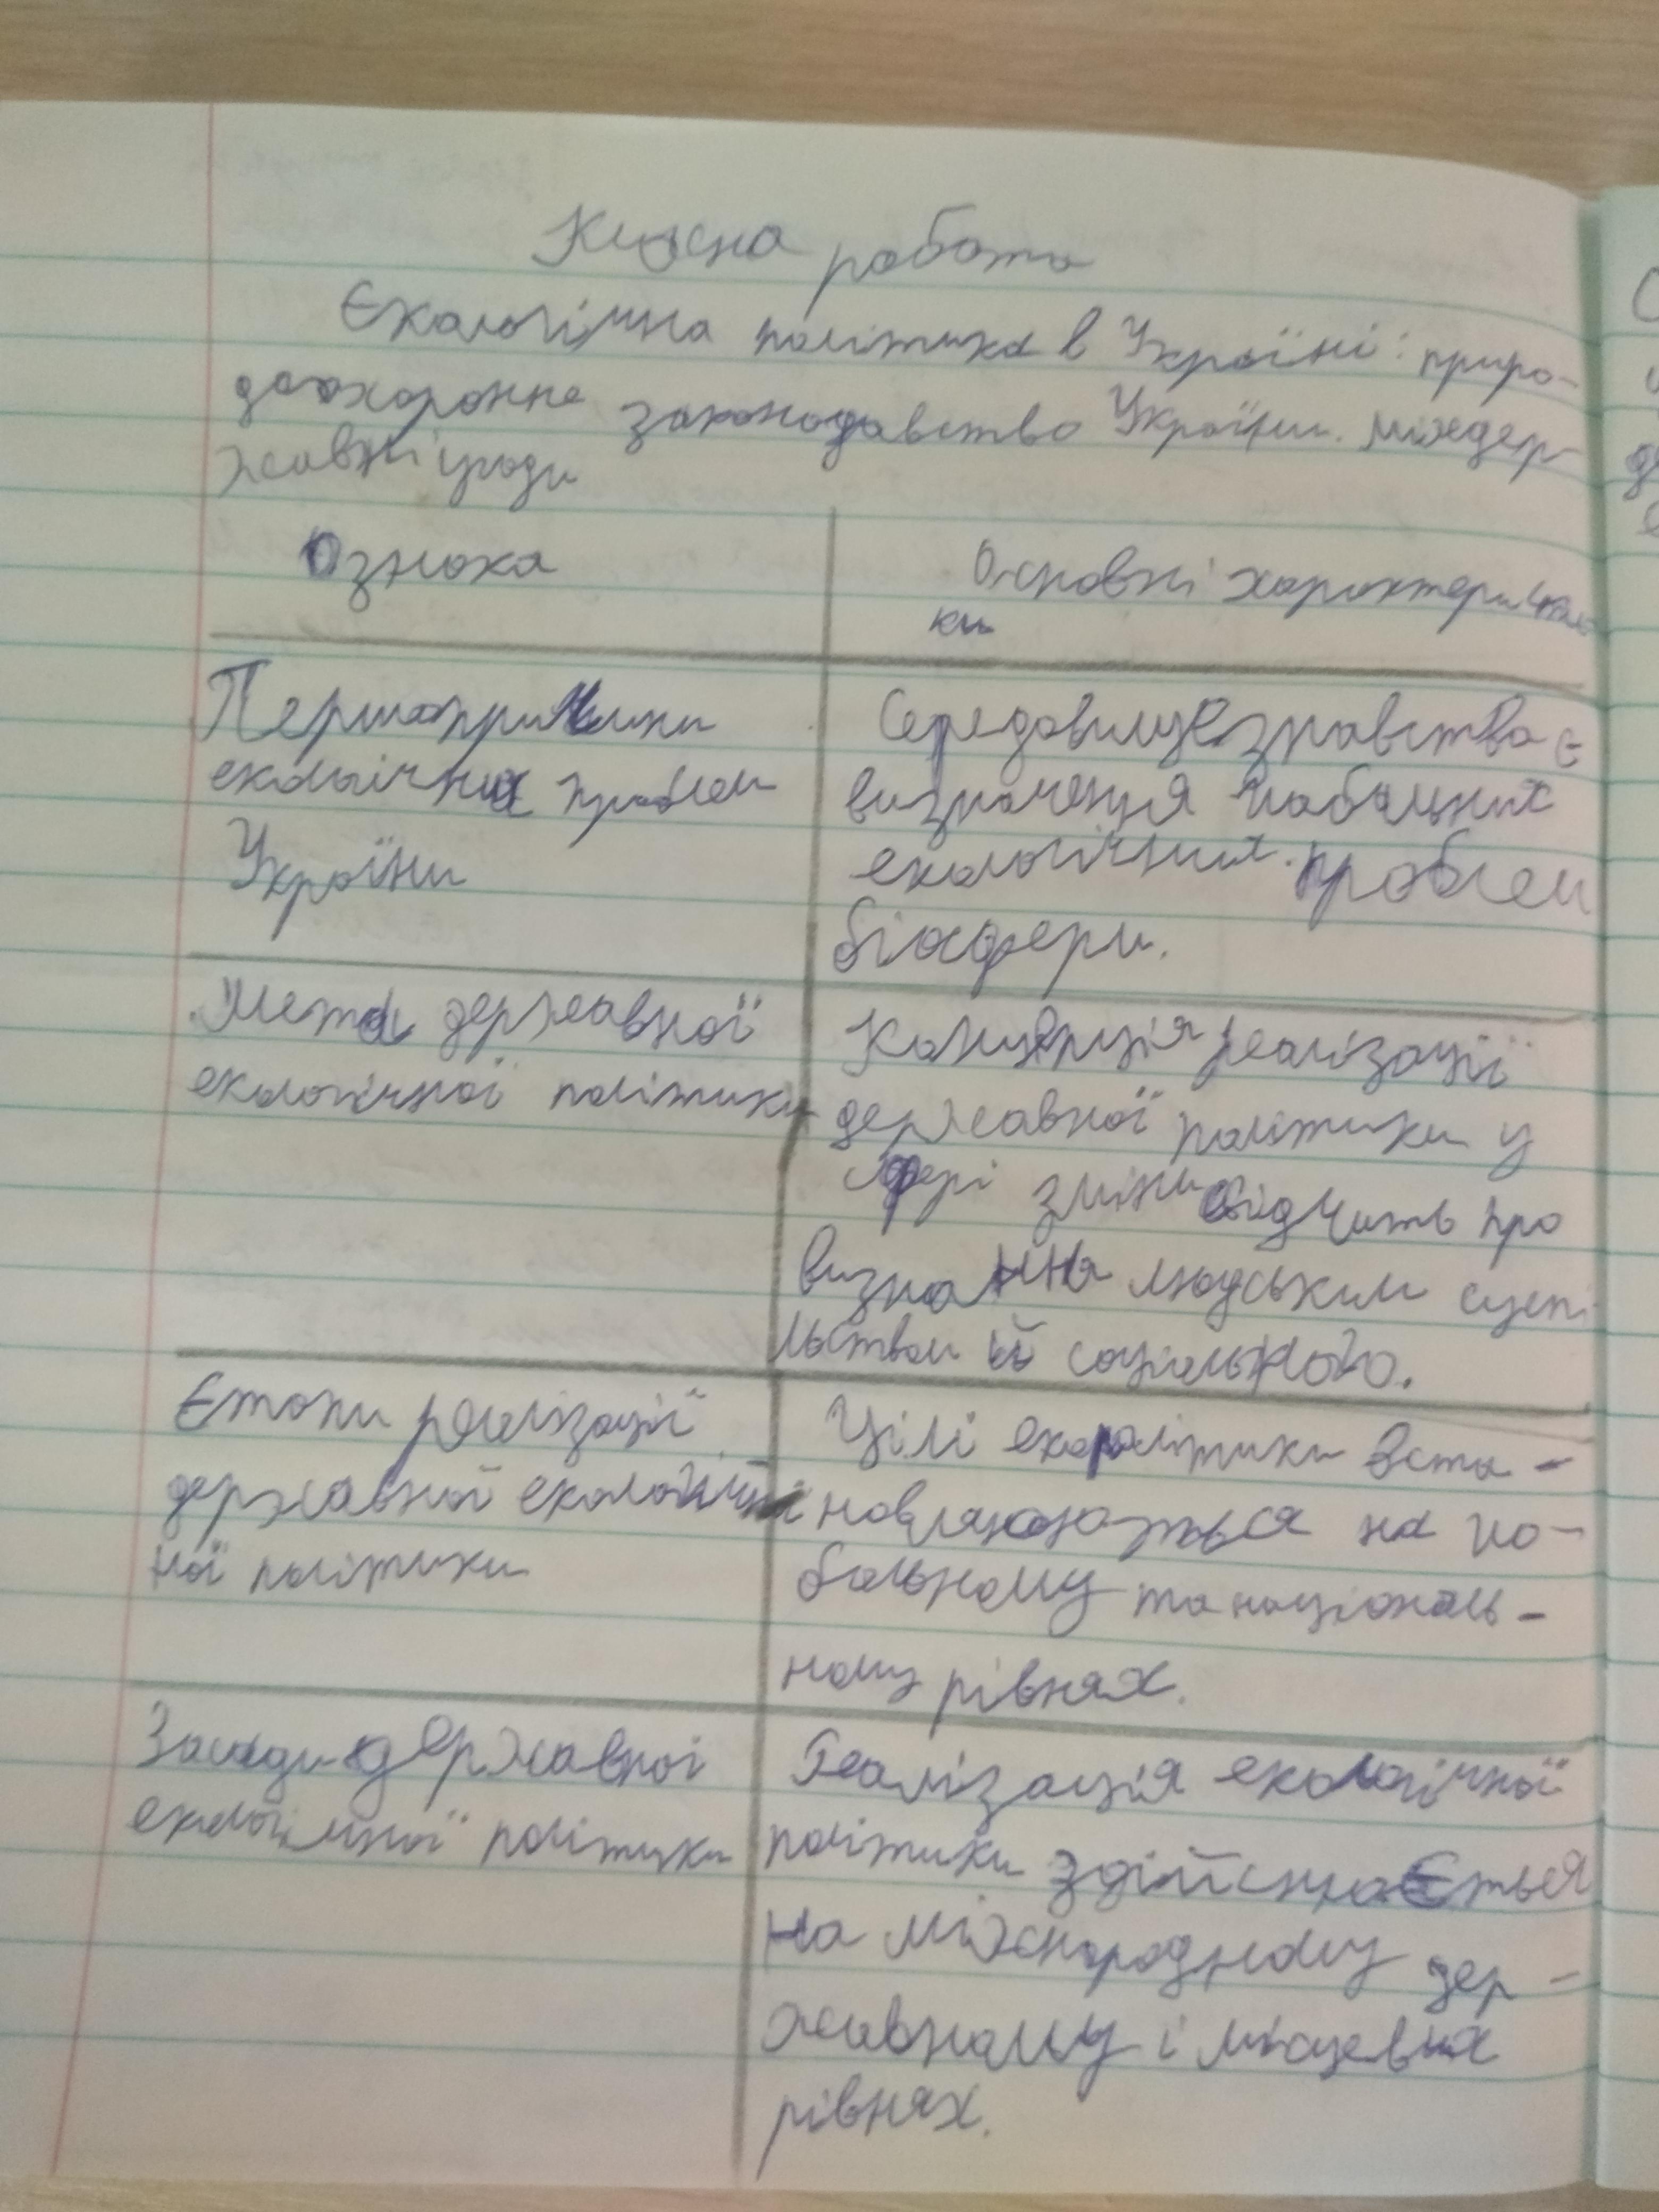 Класна робота
Єкологічна політика в Україні: приро-
доохоронне законодавство України. міждер-
жавні угоди
Ознака
Основні характеристи-
ки
Першопричини
екологічних проблем
України
Середовищезнавства є
визначення глобальних
екологічних проблем
біосфери.
Мета державної
екологічної політики
Концепція реалізації
державної політики у
сфері зміни свідчить про
визнання людським суспі
льством її соціального.
Єтапи реалізації
державної екологіч
ної політики
Цілі екополітики вста-
новлюються на гло-
бальному та національ-
ному рівнях.
Засади державної
екологічної політики
Реалізація екологічної
політики здійснюється
на міжнародному дер-
жавному і місцевих
рівнях.